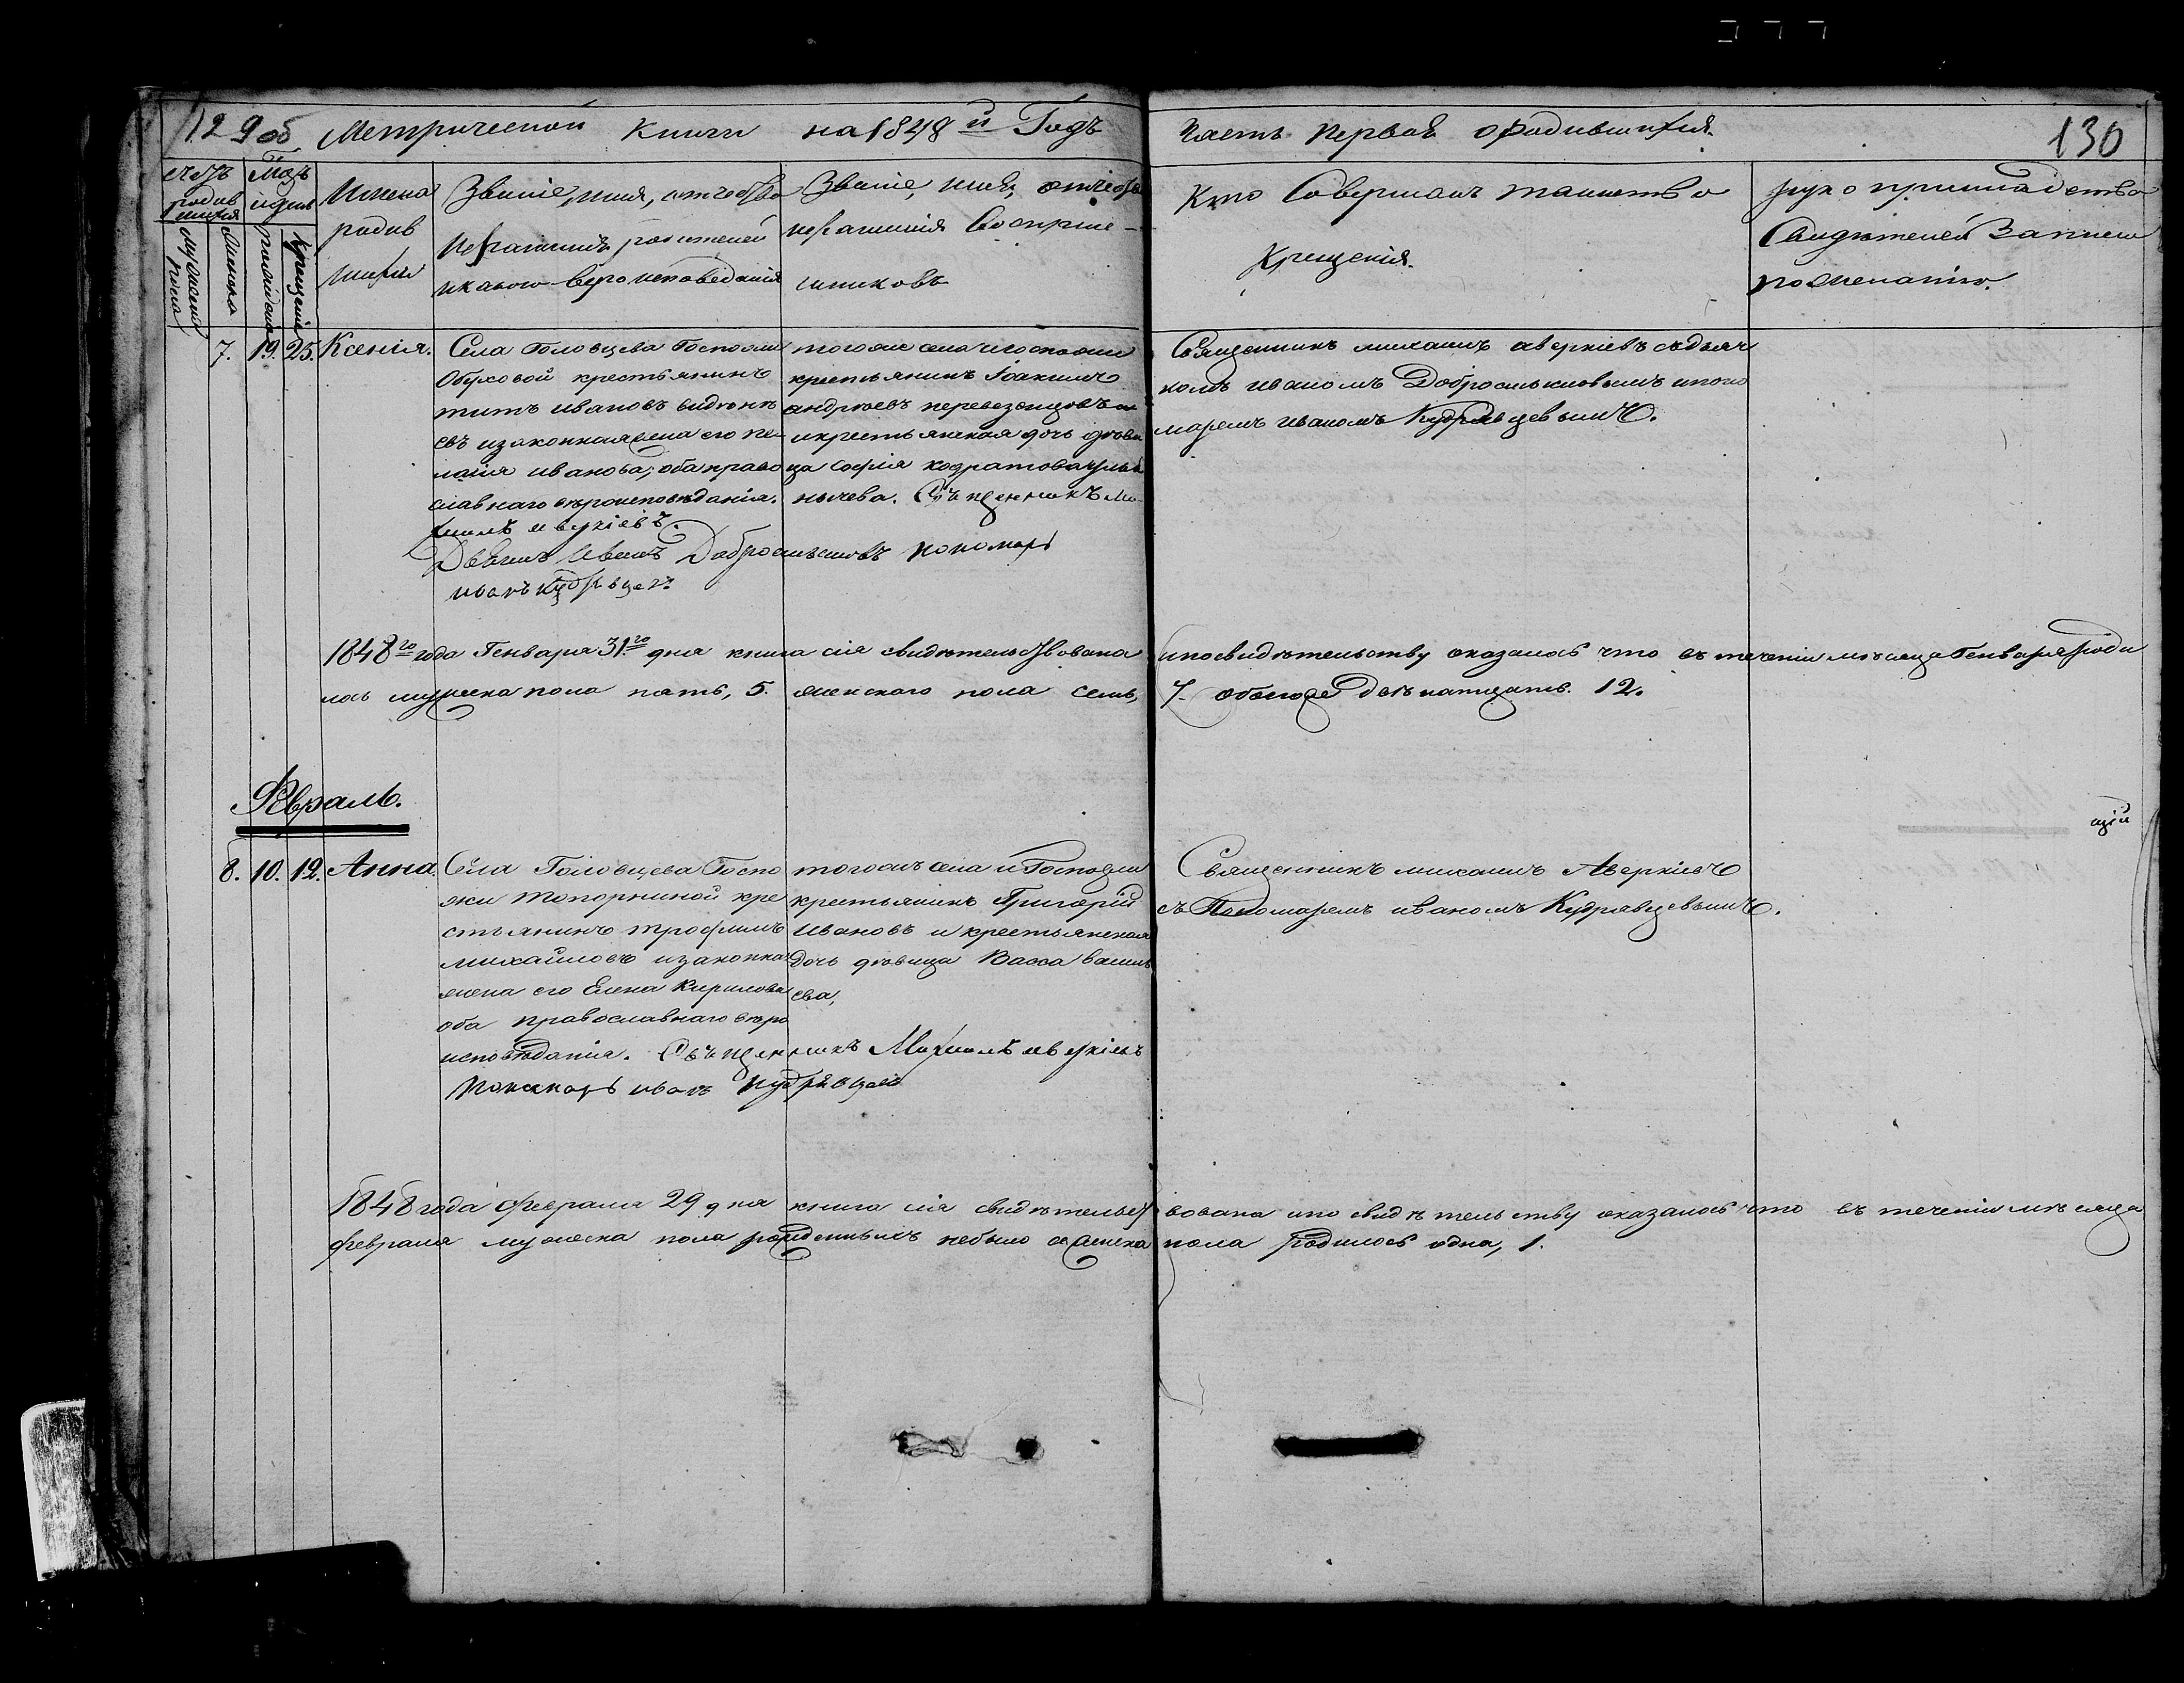 129об Метрической Книги на 1848й Годъ
Часть Первая о родившихся.
130
счетъ родившихся
Мужеска пола
Женска
Мѣсяць и день
рожденія
Крещенія
Имена родившихся
Званіе, имя, отчество
и фамилія родителей
и какого вероисповеданія
Званіе, имя, отчество
и фамилія Восприе-
мниковъ
Кто Совершалъ таинство
Крещенія.
рукоприкладство
Свидѣтелей Записи
по желанію.
7. 19. 25. Ксенія.
Села Головцева Госпожи
Обуховой крестьянинъ
титъ ивановъ
евъ и законная жена его пе-
лагія иванова; оба право
славнаго вѣроисповѣданія.
того же села и госпожи
крестьянинъ Іоакимъ
андреевъ
и крестьянская дочь дѣви
ца Софія
Священникъ Ми-
хаилъ аверкіевъ.
Дьячекъ Иванъ Добросмысловъ пономарь
иванъ Кудрявцевъ
Священникъ михаилъ аверкіевъ съ дьяч
комъ иваномъ Добросмысловымъ и поно
маремъ иваномъ Кудрявцевымъ.
1848го года Генваря 31го дня книга сія свидѣтельствована и по свидѣтельству оказалось что въ теченіи мѣсяца Генваря роди
лось мужеска пола пять, 5. женскаго пола семь, 7. обоего двѣнатцать. 12.
Февраль.
щій
8. 10. 12. Анна
Села Головцева Госпо
жи Топорниной кре
стьянинъ трофимъ
михайловъ и законная
жена его Елена Кирилова
оба православнаго вѣро
исповѣданія.
того жъ села и Госпожи
крестьянинъ Григорій
Ивановъ и крестьянская
дочь дѣвица Васса василь
ева.
Священникъ Михаилъ аверкіевъ
Пономарь иванъ Кудрявцевъ
Священникъ михаилъ Аверкіевъ
съ Пономаремъ иваномъ Кудрявцевымъ.
1848 года февраля 29 дня книга сія свидѣтельствована и по свидѣтельству оказалось что въ теченіи мѣсяца
февраля мужеска пола рожденныхъ небыло а женска пола родилось одна, 1.